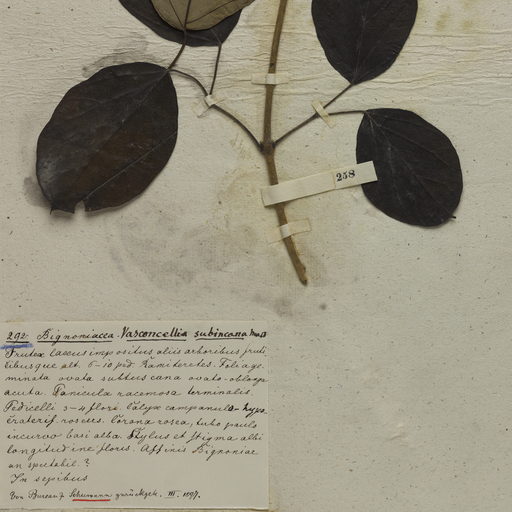 258
292. Bignoniacea. Vasconcellia subincana Mart
Frutex laccus impositus aliis arboribus fruti
cibusque alt. 5-10 ped. Rami teretes. Folia ge
minata ovata subtus cana ovato-oblonga
acuta. Panicula racemosa terminalis.
Pedicelli 3-4 flori. Calyx campanula- hypo
craterif. roseus. Corona rosea, tubo paulo
incurvo basi alba. Stylus et stigma albi
longitudine floris. Affinis Bignoniae
an spectabil. ?
In sepibus
Von Bureau & Schumann zurückgek. III. 1897.